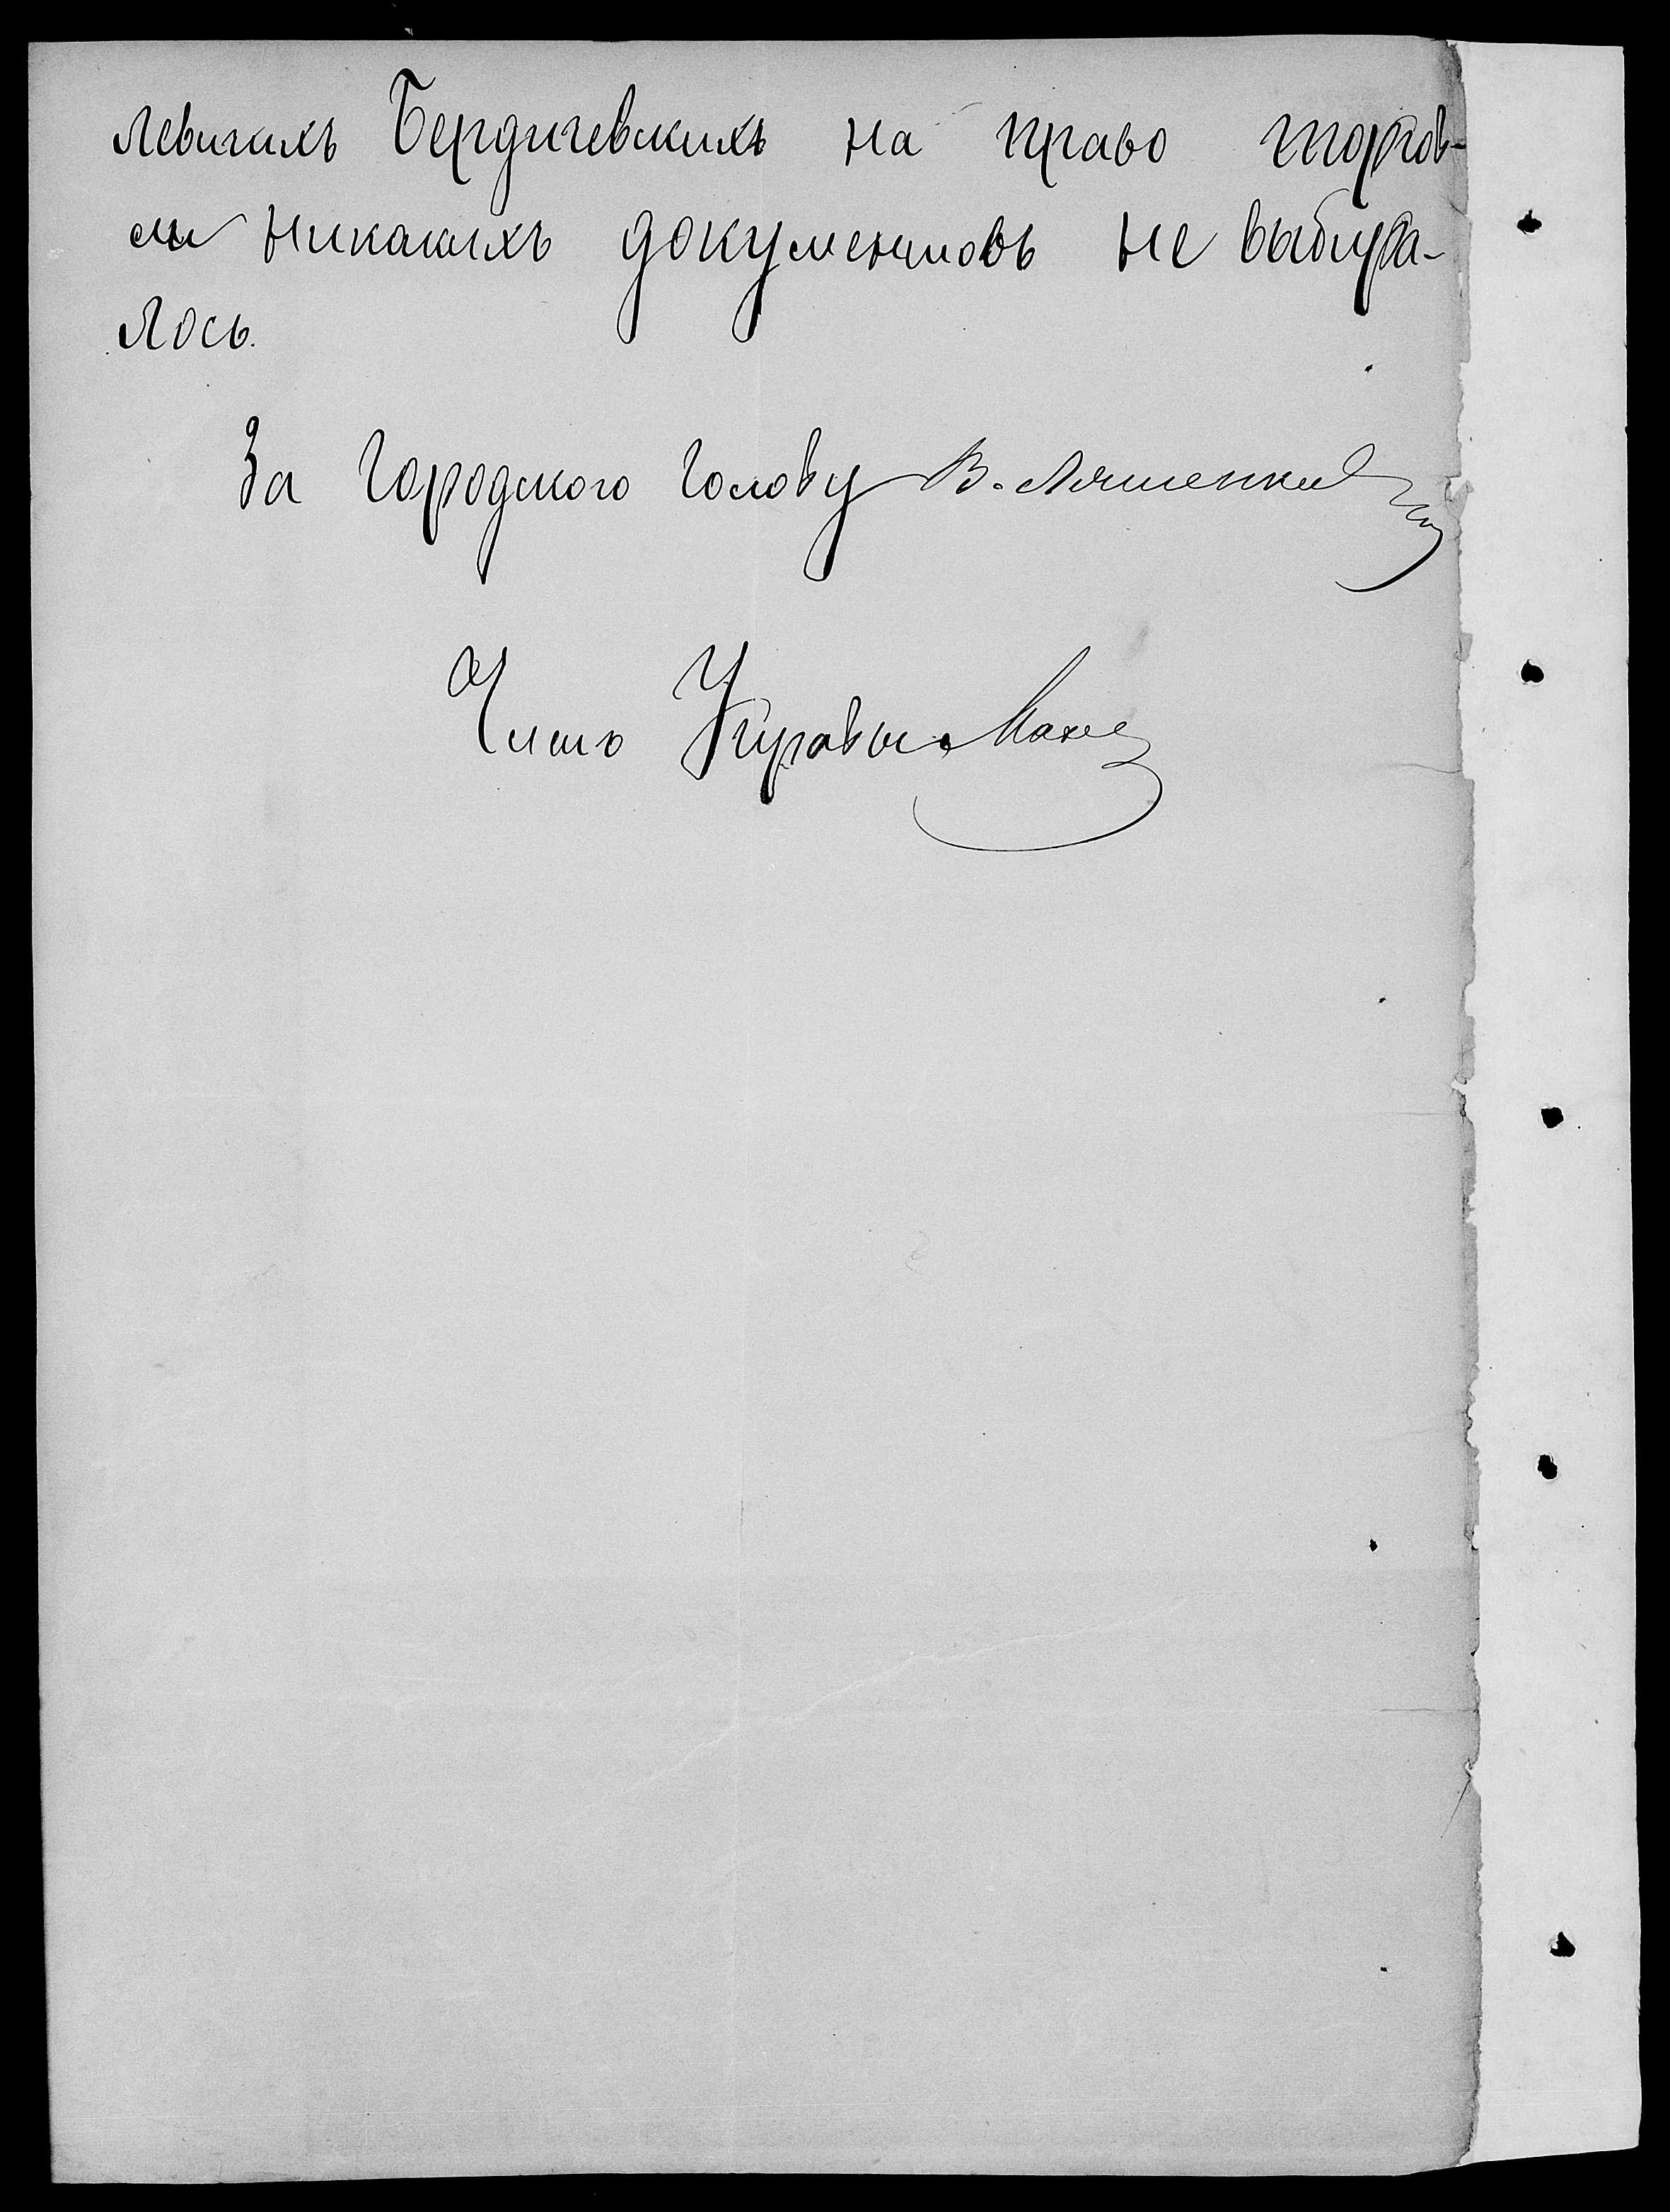 левичихъ Бердичевскихъ на право торгов-
ли никакихъ документовъ не выбира-
лось.
За Городского Голову В. Ляшенко
Членъ Управы